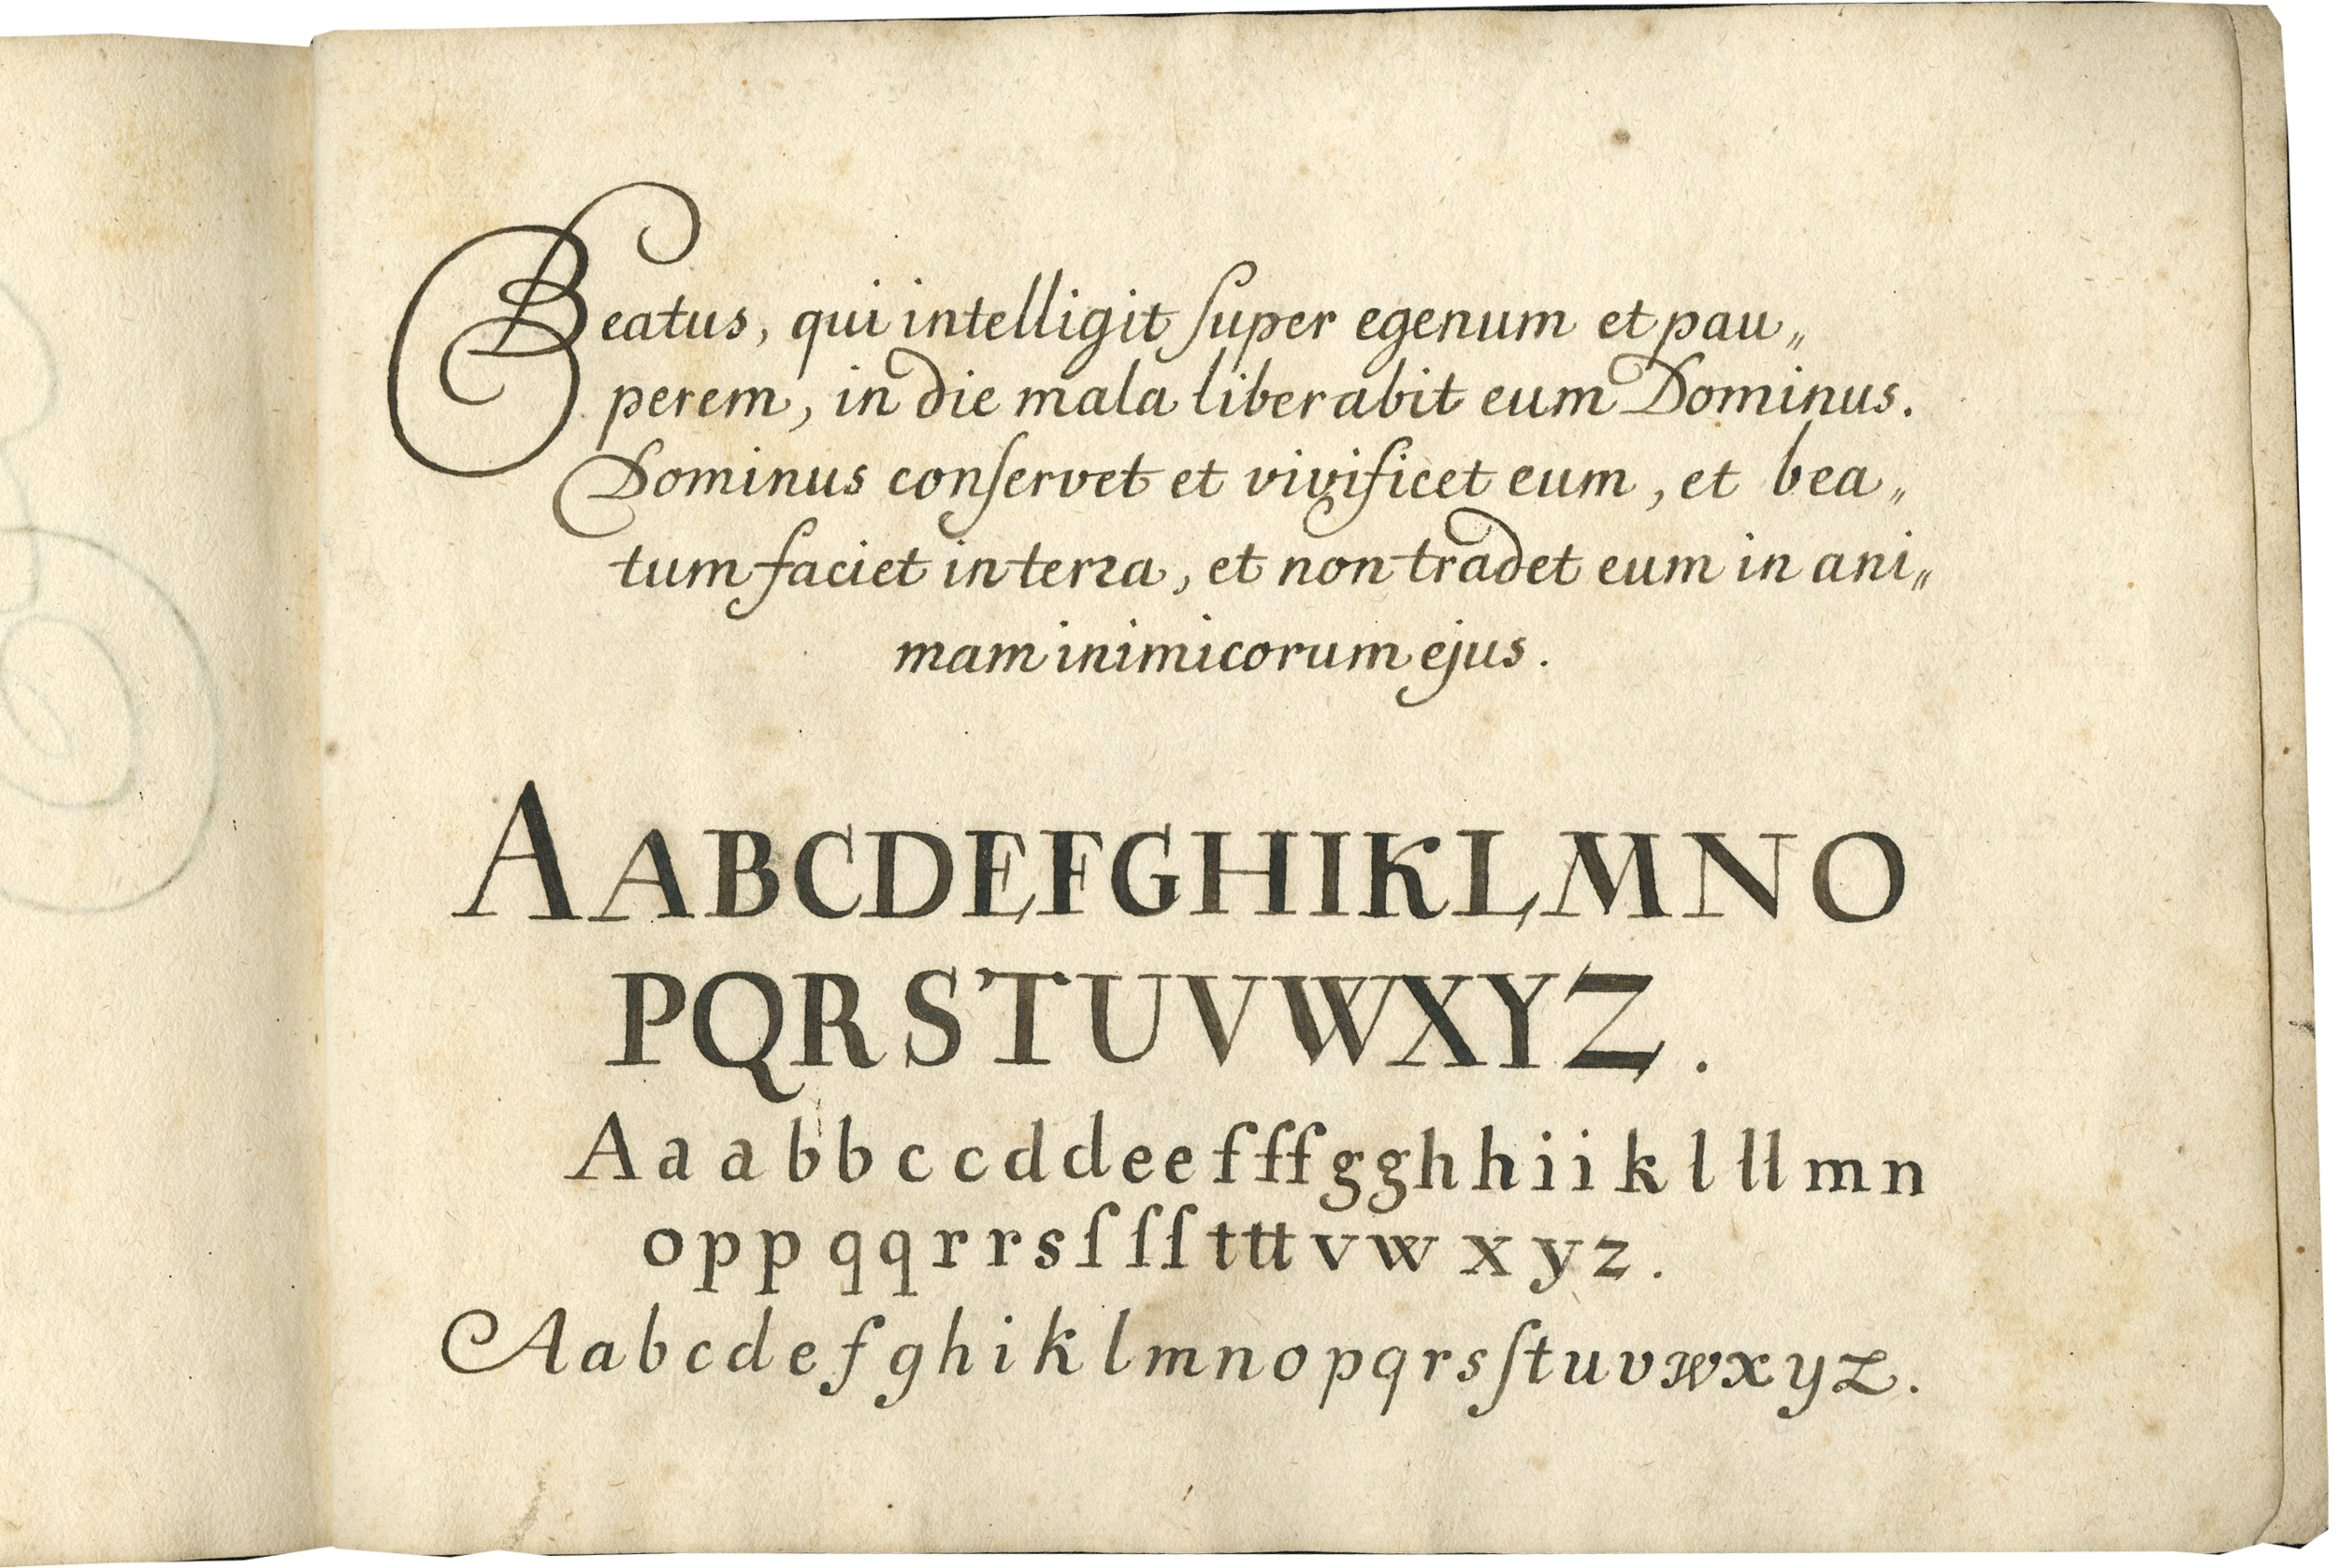 Beatus, qui intelligit ſuper egenum et pau„
perem, in die mala liberabit eum Dominus.
Dominus conſervet et vivificet eum, et bea„
tum faciet in terꝛa, et non tradet eum in ani„
mam inimicorum ejus.
A A B C D E F G H I K L M N O
P Q R S T U V W X Y Z.
A a a b b c c d d e e f ff g g h h i i k l ll m n
o p p q q r r s ſ ſſ t tt v w x y z.
A a b c d e f g h i k l m n o p q r s ſ t u v w x y z.